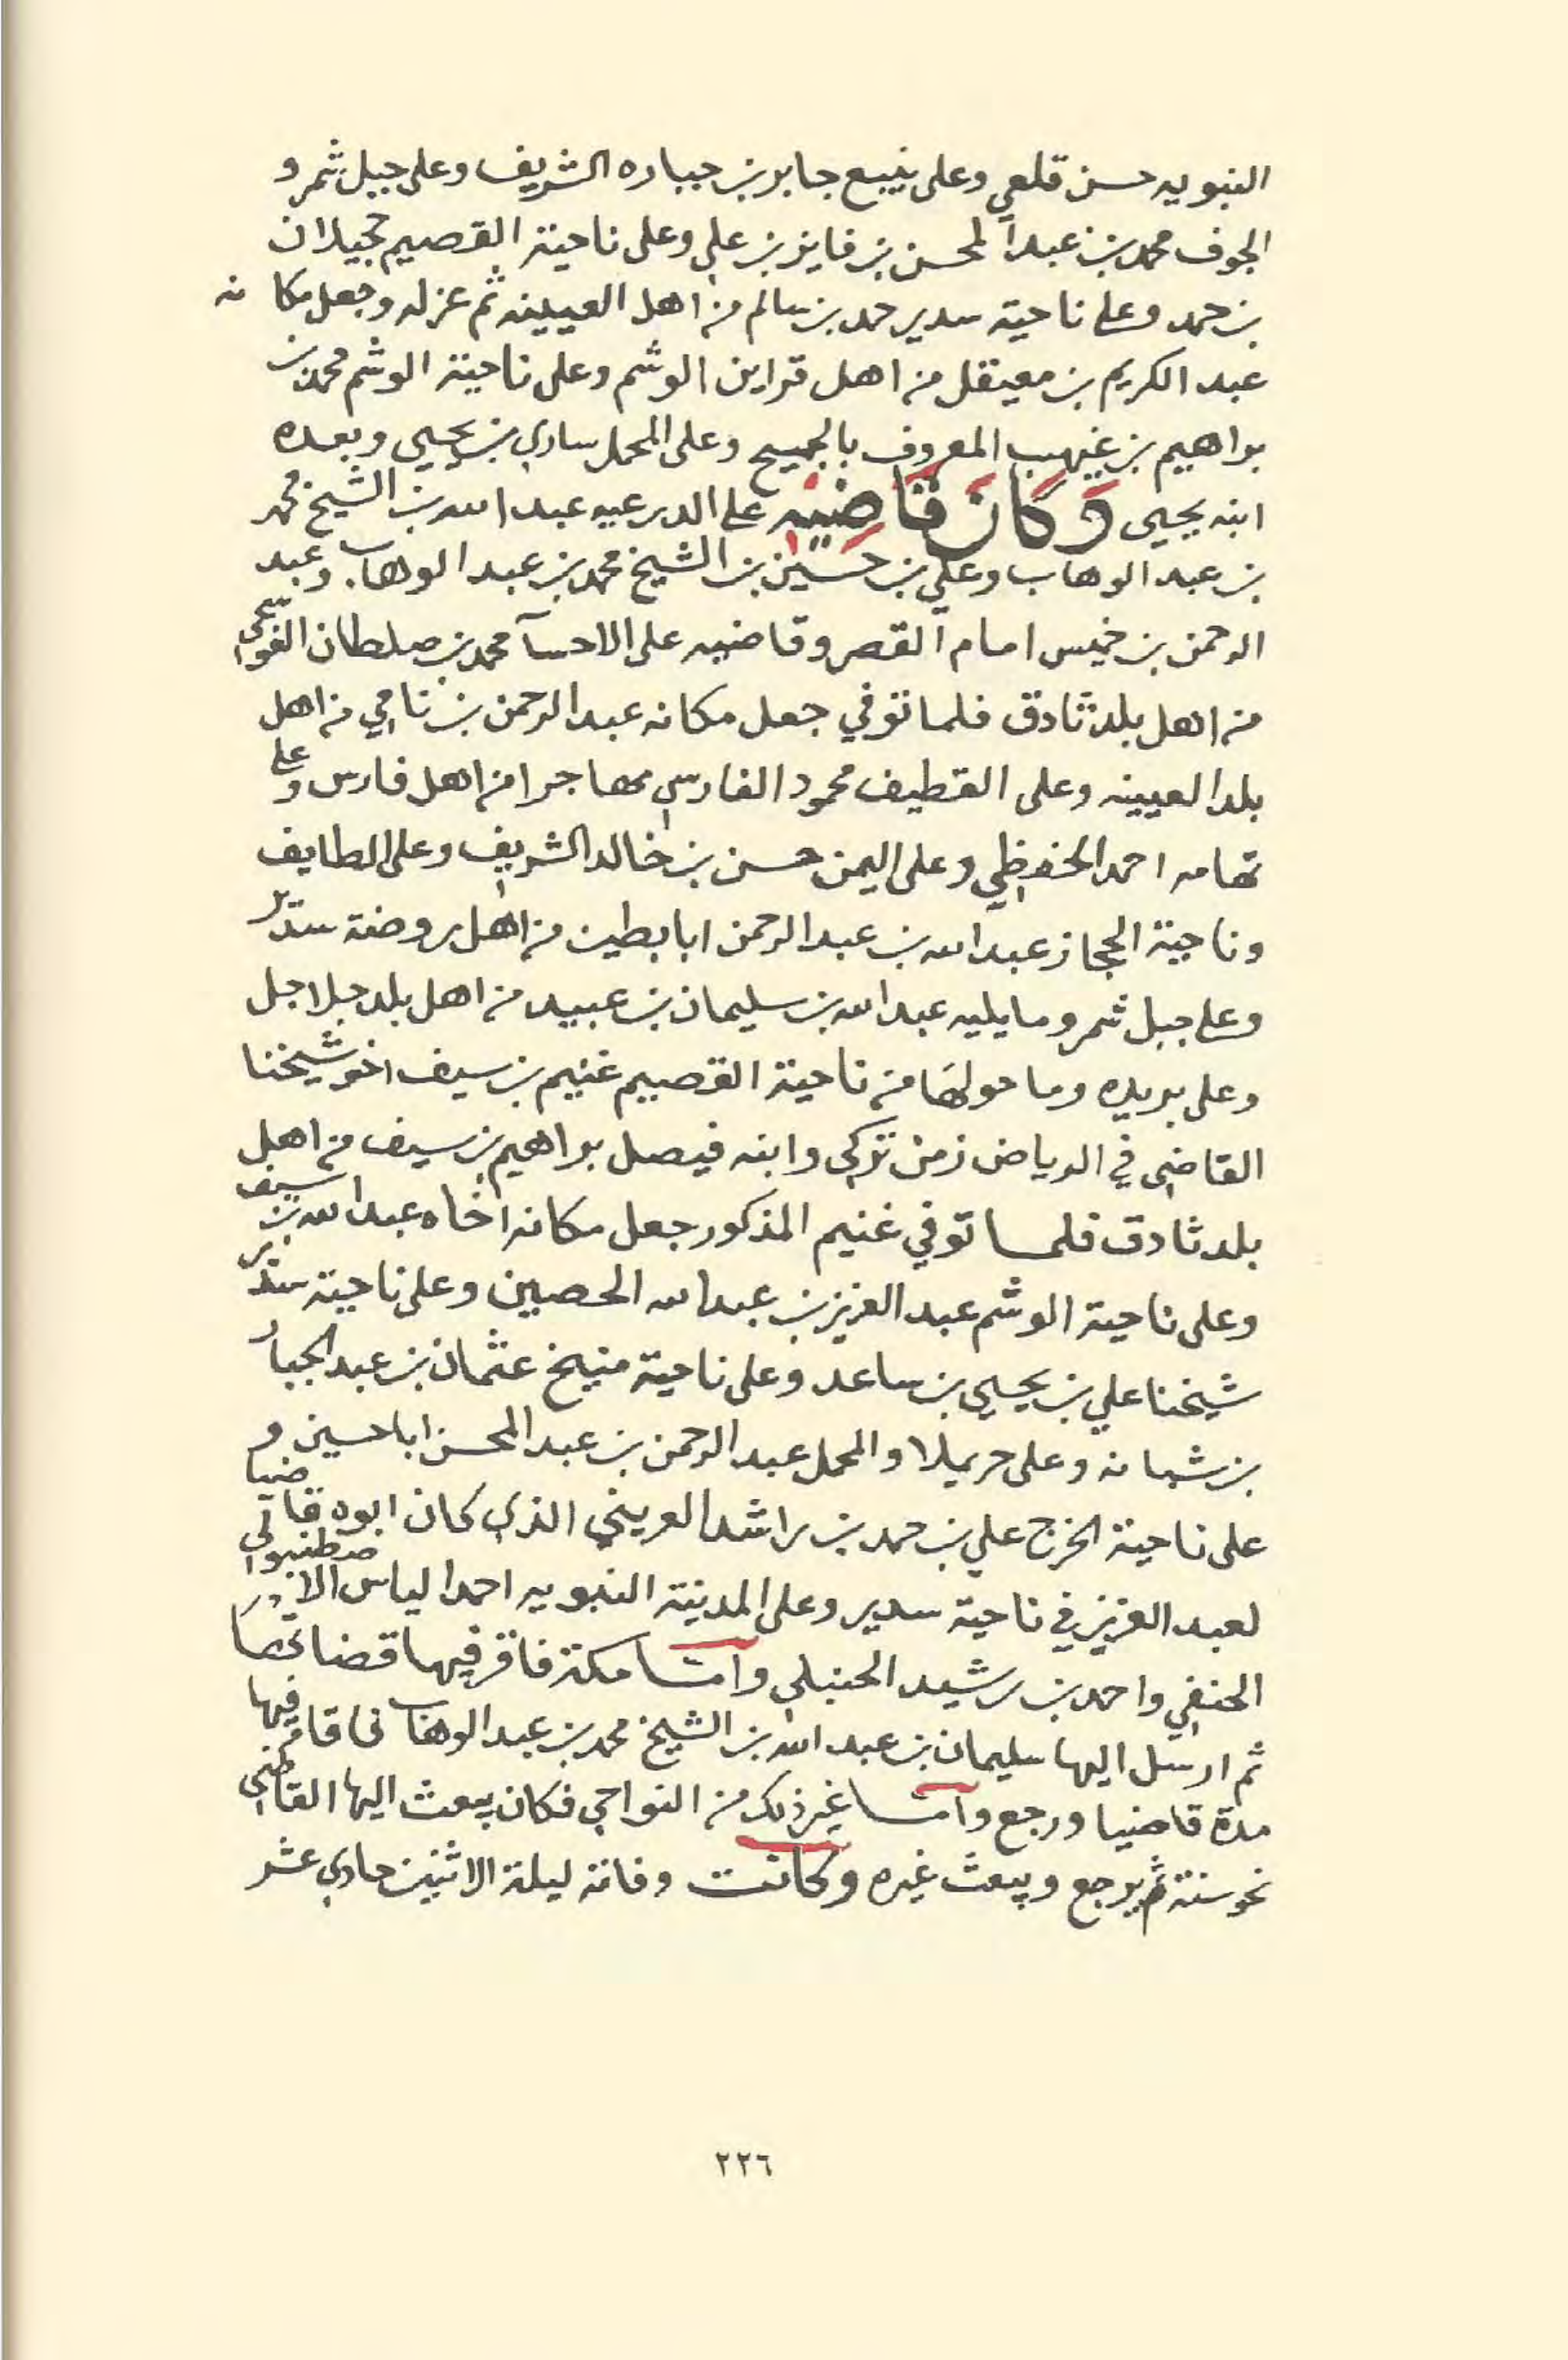 النبويه حسن قلعي وعلى ينبع جابر بن جباره الشريف وعلى جبل شمر و
الجوف محمد بن عبد المحسن بن فايز بن علي وعلى ناحية القصيم حجيلان
بن حمد وعلى ناحية سدير حمد بن سالم من اهل العيينه ثم عزله وجعل مكانه
عبد الكريم بن معيقل من اهل قراين الوشم وعلى ناحية الوشم محمد بن
براهيم بن غيهب المعروف بالجميح وعلى المحمل ساري بن يحيى وبعده
ابنه يحيى وكان قاضيه على الدرعيه عبد الله بن الشيخ محمد
بن عبد الوهاب وعلي بن حسين بن الشيخ محمد بن عبد الوهاب وعبد
الرحمن بن خميس امام القصر وقاضيه على الاحسآ محمد بن صلطان العوسجي
من اهل بلد ثادق فلما توفي جعل مكانه عبد الرحمن بن نامي من اهل
بلد العيينه وعلى القطيف محمود الفارسي مهاجرا من اهل فارس وعلى
تهامه احمد الحفظي وعلى اليمن حسن بن خالد الشريف وعلى الطايف
وناحية الحجاز عبد الله بن عبد الرحمن ابابطين من اهل روضة سدير
وعلى جبل شمر وما يليه عبد الله بن سليمان بن عبيد من اهل بلد جلاجل
وعلى بريده وما حولها من ناحية القصيم غنيم بن سيف اخو شيخنا
القاضي في الرياض زمن تركي وابنه فيصل براهيم بن سيف من اهل
بلد ثادق فلما توفي غنيم المذكور جعل مكانه اخاه عبد الله بن سيف
وعلى ناحية الوشم عبد العزيز بن عبد الله الحصين وعلى ناحية سدير
شيخنا علي بن يحيى بن ساعد وعلى ناحية منيخ عثمان بن عبد الجبار
بن شبانه وعلى حريملا والمحمل عبد الرحمن بن عبد المحسن اباحسين و
على ناحية الخرج علي بن حمد بن راشد العريني الذي كان ابوه قاضيا
لعبد العزيز في ناحية سدير وعلى المدينة النبويه احمد الياس الاصطنبولي
الحنفي واحمد بن رشيد الحنبلي وامّا مكة فاقر فيها قضاتها
ثم ارسل اليها سليمان بن عبد الله بن الشيخ محمد بن عبد الوهاب فاقام فيها
مدة قاضيا ورجع وامّا غير ذلك من النواحي فكان يبعث اليها القاضي
نحو سنة ثم يرجع ويبعث غيره وكانت وفاته ليلة الاثنين حادي عشر
٢٢٦